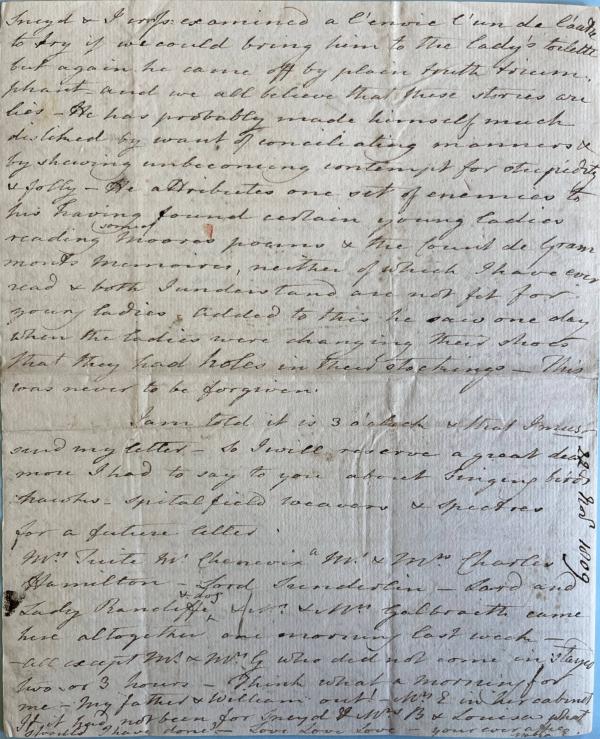 Sneyd & I cross examined a l'envie l'un de l'autre
to try if we could bring him to the lady's toilette
but again he came off by plain truth trium
phant - and we all believe that these stories are
lies - He has probably made himself much
disliked by want of conciliating manners &
by shewing unbecoming contempt for stupidity
& folly - He attributes one set of enemies to
his having found certain young ladies
reading some of Moores poems & the Count de Gram
monts Memoires, neither of which I have ever
read & both I understand are not fit for
young ladies Added to this he saw one day
when the ladies were changing their shoes
that they had holes in their stockings - This
was never to be forgiven.
I am told it is 3 oclock & that I must
send my letter - So I will reserve a great deal
more I had to say to you about Singing birds
hawks - spitalfield weavers & spectres
for a future letter.
Mrs Tuite Mr Chenevix Mr & Mrs Charles
Hamilton - Lord Sunderlin - Lord and
Lady Rancliffe, & Mr & Mrs Galbraith came
here altogether one morning last week -
- all except Mr & Mrs G who did not come in stayed
two or 3 hours - Think what a morning for
me - My father & William out! Mrs E in her cabinet
If it had not been for Sneyd & Mrs B & Louisa what
should I have done - Love Love Love - your ever affec
1809